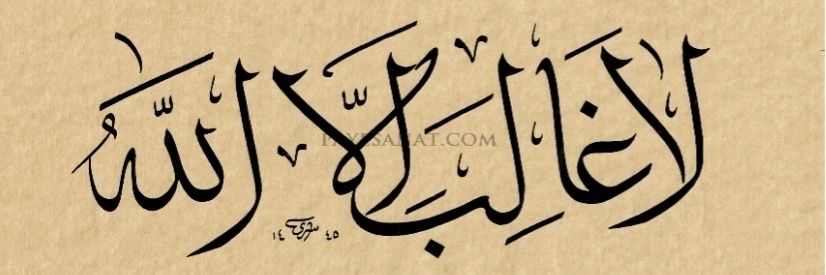 لَا غَالِبَ إِلَّا اللّٰهُ
FAYESANAT.COM
١٤٤٥